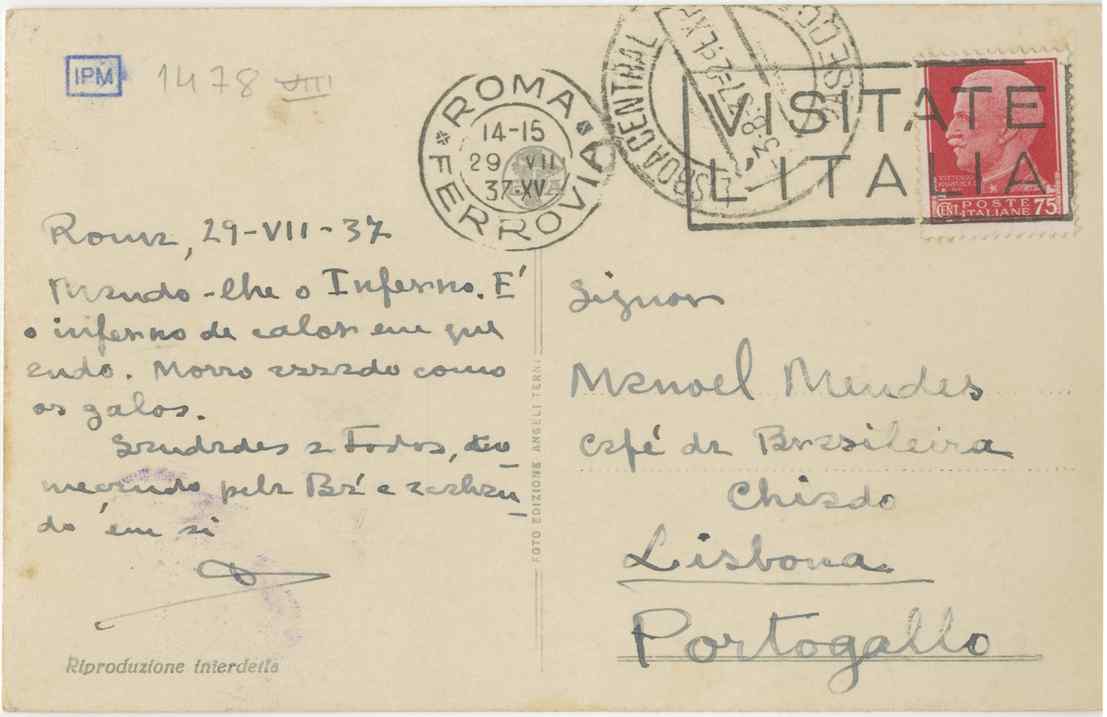 IPM 1478 VIII
ROMA FERROVIA
14-15
29 VII
37-XV
LISBOA CENTRAL
VISITATE
L'ITALIA
POSTE
CENT. ITALIANE 75
Roma, 29-VII-37
Mando-lhe o Inferno. É
o inferno de calor em que
ando. Morro assado como
os galos.
Saudades a Todos, co
meçando pela Bá e acaban
do em si
FOTO EDIZIONE ANGELI TERNI
Signor
Manoel Mendes
Café da Brasileira
Chiado
Lisbona
Portogallo
Riproduzione interdetta